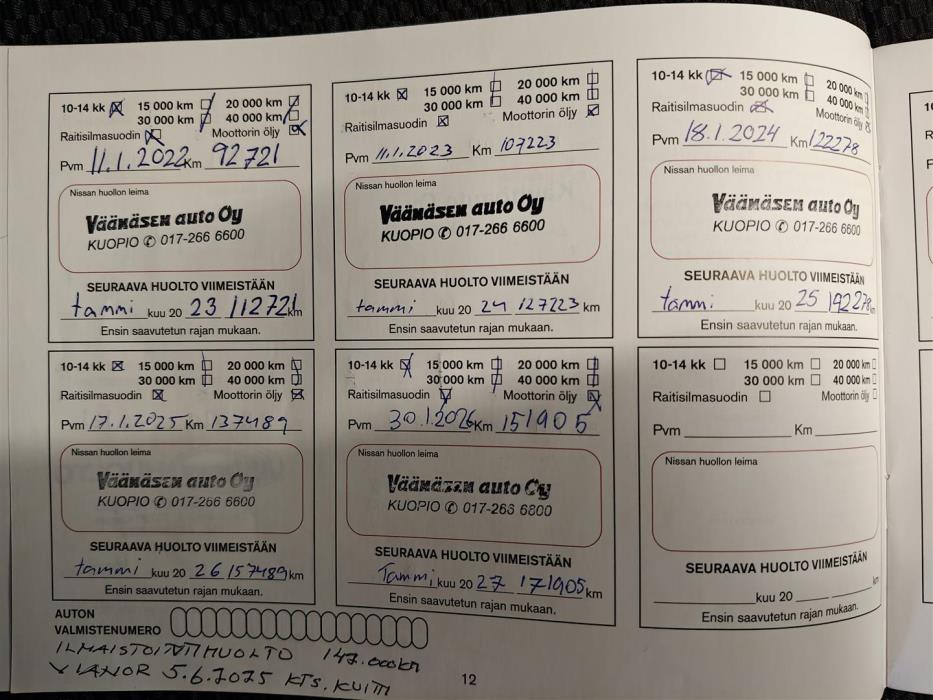 10-14 kk 15 000 km 20 000 km
30 000 km 40 000 km
Raitisilmasuodin Moottorin öljy
Pvm 11.1.2022 Km 92721
Nissan huollon leima
Väänäsen auto Oy
KUOPIO ✆ 017-266 6600
SEURAAVA HUOLTO VIIMEISTÄÄN
tammi kuu 20 23 112721 km
Ensin saavutetun rajan mukaan.
10-14 kk 15 000 km 20 000 km
30 000 km 40 000 km
Raitisilmasuodin Moottorin öljy
Pvm 11.1.2023 Km 107223
Nissan huollon leima
Väänäsen auto Oy
KUOPIO ✆ 017-266 6600
SEURAAVA HUOLTO VIIMEISTÄÄN
tammi kuu 20 24 127223 km
Ensin saavutetun rajan mukaan.
10-14 kk 15 000 km 20 000 km
30 000 km 40 000 km
Raitisilmasuodin Moottorin öljy
Pvm 18.1.2024 Km 122278
Nissan huollon leima
Väänäsen auto Oy
KUOPIO ✆ 017-266 6600
SEURAAVA HUOLTO VIIMEISTÄÄN
tammi kuu 20 25 192278 km
Ensin saavutetun rajan mukaan.
10-14 kk 15 000 km 20 000 km
30 000 km 40 000 km
Raitisilmasuodin Moottorin öljy
Pvm 17.1.2025 Km 137489
Nissan huollon leima
Väänäsen auto Oy
KUOPIO ✆ 017-266 6600
SEURAAVA HUOLTO VIIMEISTÄÄN
tammi kuu 20 26 157489 km
Ensin saavutetun rajan mukaan.
10-14 kk 15 000 km 20 000 km
30 000 km 40 000 km
Raitisilmasuodin Moottorin öljy
Pvm 30.1.2026 Km 151905
Nissan huollon leima
Väänäsen auto Oy
KUOPIO ✆ 017-266 6600
SEURAAVA HUOLTO VIIMEISTÄÄN
Tammi kuu 20 27 171905 km
Ensin saavutetun rajan mukaan.
10-14 kk 15 000 km 20 000 km
30 000 km 40 000 km
Raitisilmasuodin Moottorin öljy
Pvm Km
Nissan huollon leima
SEURAAVA HUOLTO VIIMEISTÄÄN
kuu 20 km
Ensin saavutetun rajan mukaan.
AUTON
VALMISTENUMERO
ILMAISTOINTIHUOLTO 142.000km
VIANOR 5.6.2025 KTS. KUITTI
12